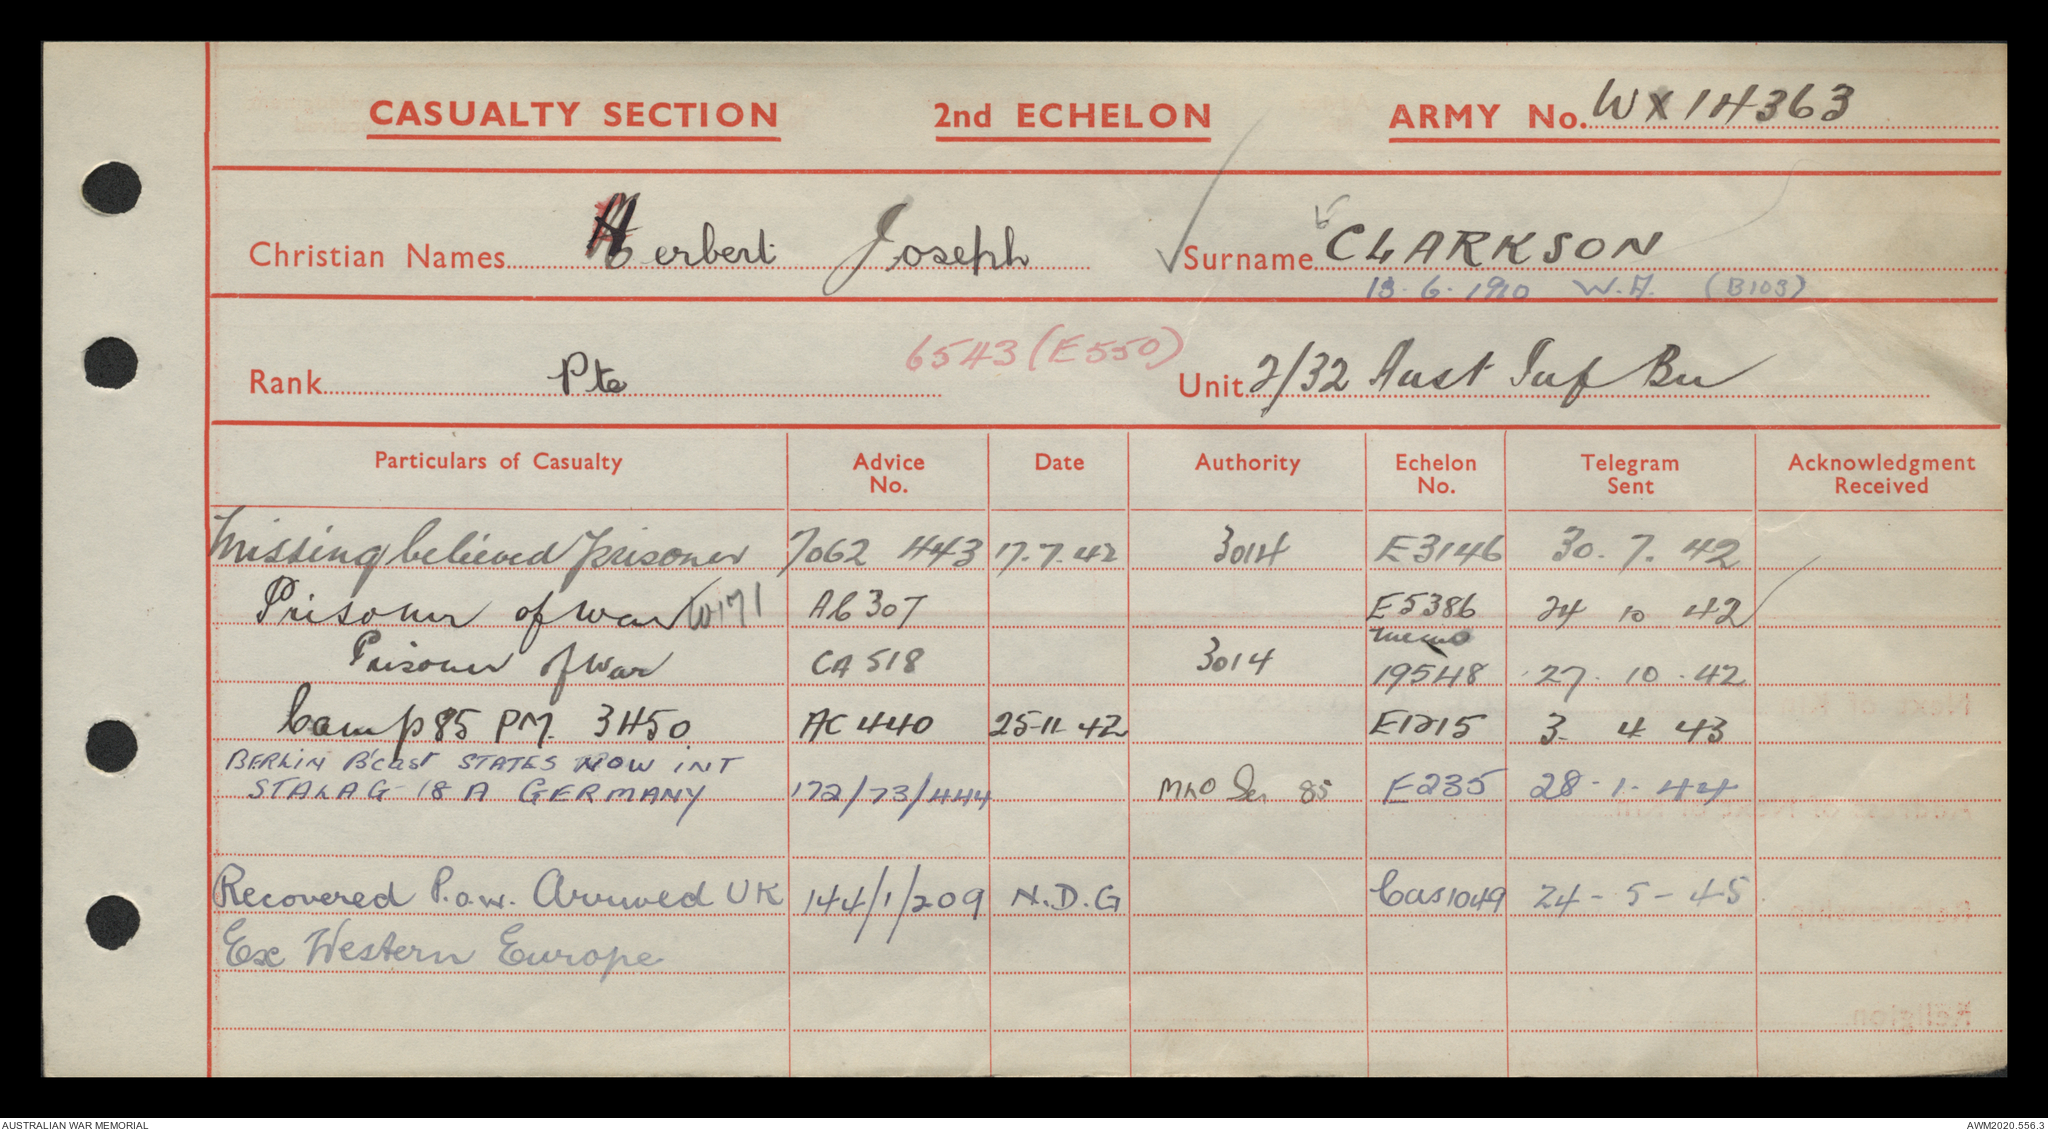 CASUALTY SECTION 2nd ECHELON ARMY No. WX14363
Christian Names Herbert Joseph Surname CLARKSON
13.6.1910 W.A. (B103)
6543 (E550)
Rank Pte Unit 2/32 Aust Inf Bn
Particulars of Casualty Advice No. Date Authority Echelon No. Telegram Sent Acknowledgment Received
Missing believed prisoner 7062 443 17.7.42 3014 E3146 30.7.42
Prisoner of war W171 AC307 E5386 24 10 42
memo
Prisoner of war CA518 3014 19548 27.10.42
Camp 85 PM. 3450 AC440 25-11-42 E1215 3 4 43
BERLIN B'cast STATES NOW INT
STALAG-18A GERMANY 172/73/444 85 E235 28-1-44
Recovered P.o.w. Arrived UK 144/1/209 N.D.G Cas1049 24-5-45
Ex Western Europe
AUSTRALIAN WAR MEMORIAL AWM2020.556.3